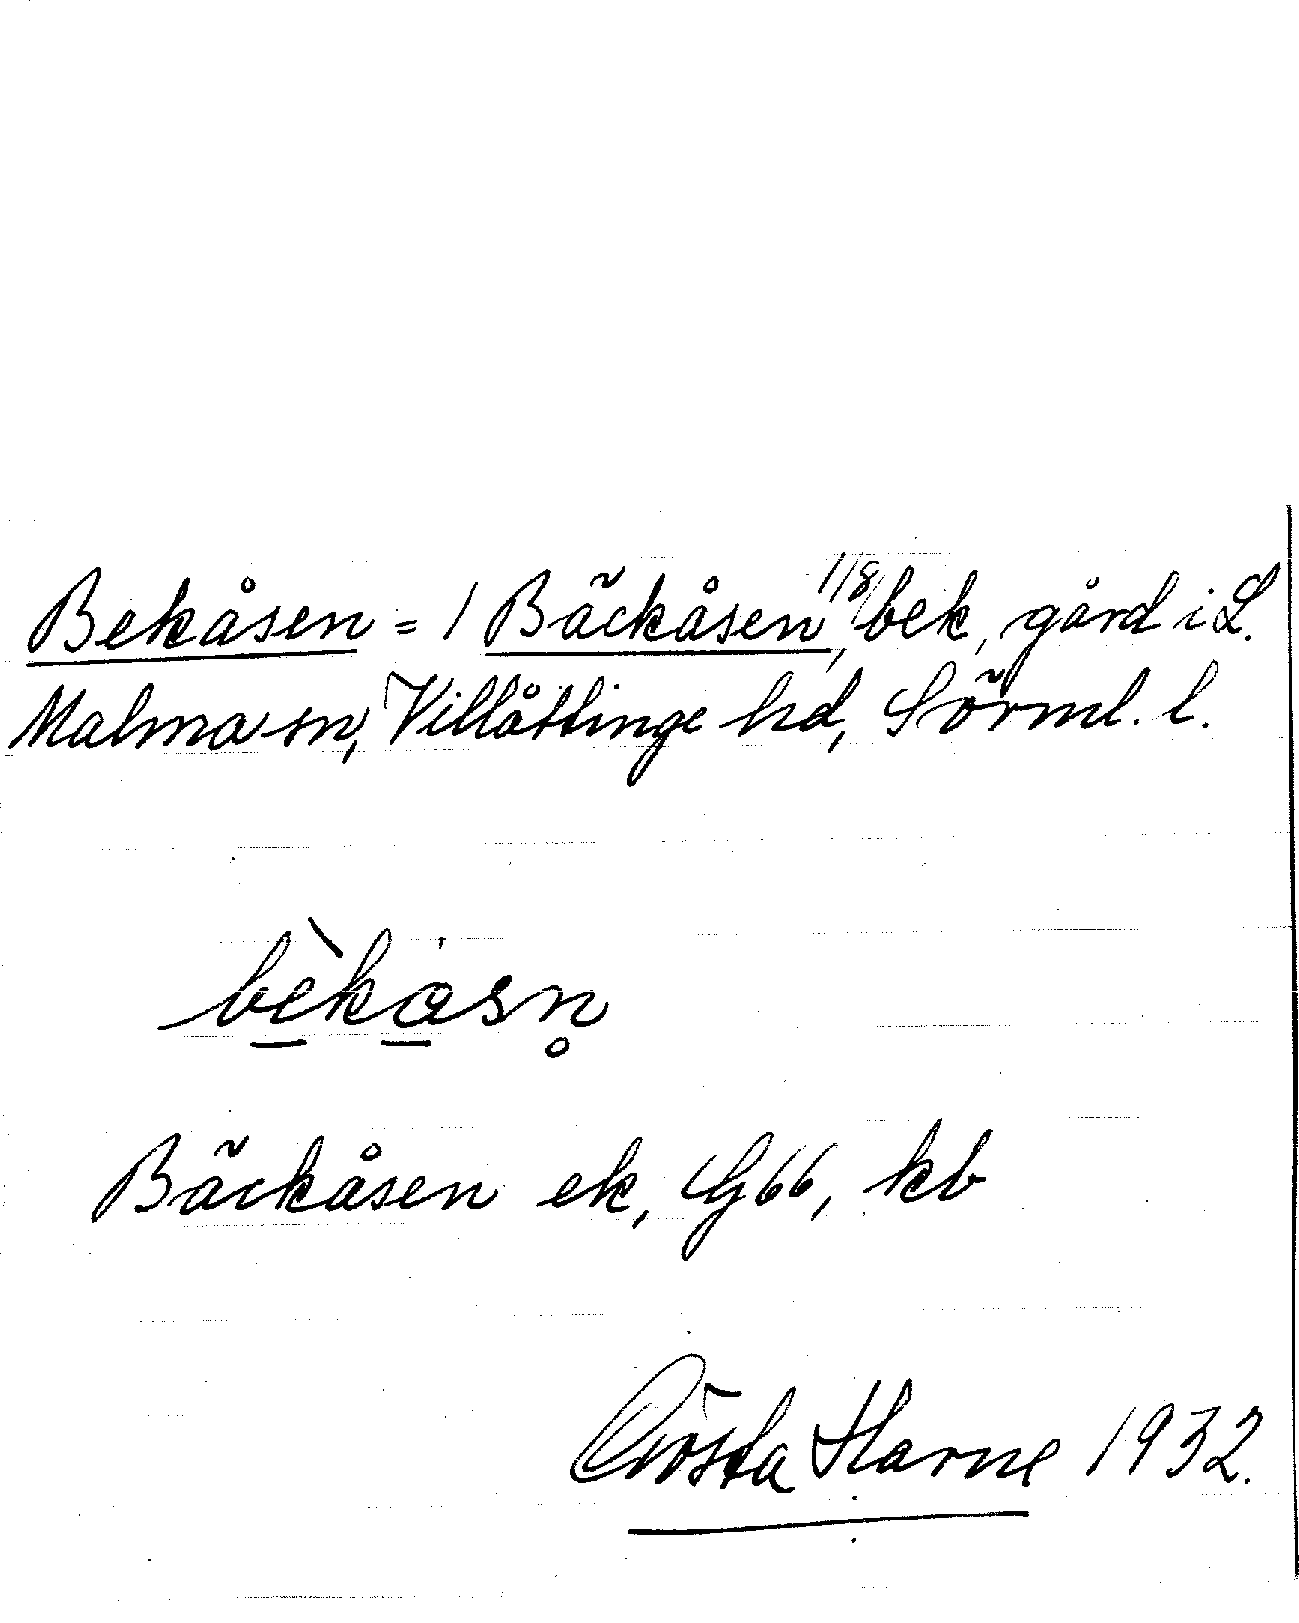 Bekåsen = 1 Bäckåsen, 1/8 bek, gård i L.
Malma sn, Villåttinge hd, Sörml. l.
bèkåsn̥
Bäckåsen ek, G66, kb
Gösta Harne 1932.